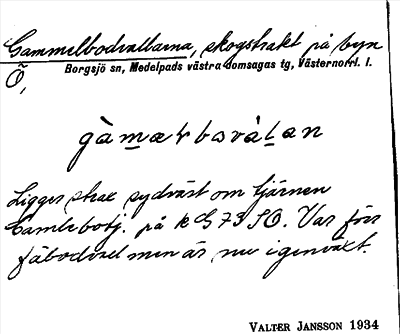 Gammelbodvallarna, skogstrakt på byn
Ö,
Borgsjö sn, Medelpads västra domsagas tg, Västernorrl. l.
gàmæłbωvàḷan
Ligger strax sydväst om tjärnen
Gamlebotj. på k G 73 SO. Var förr
fäbodvall men är nu igenväxt.
VALTER JANSSON 1934